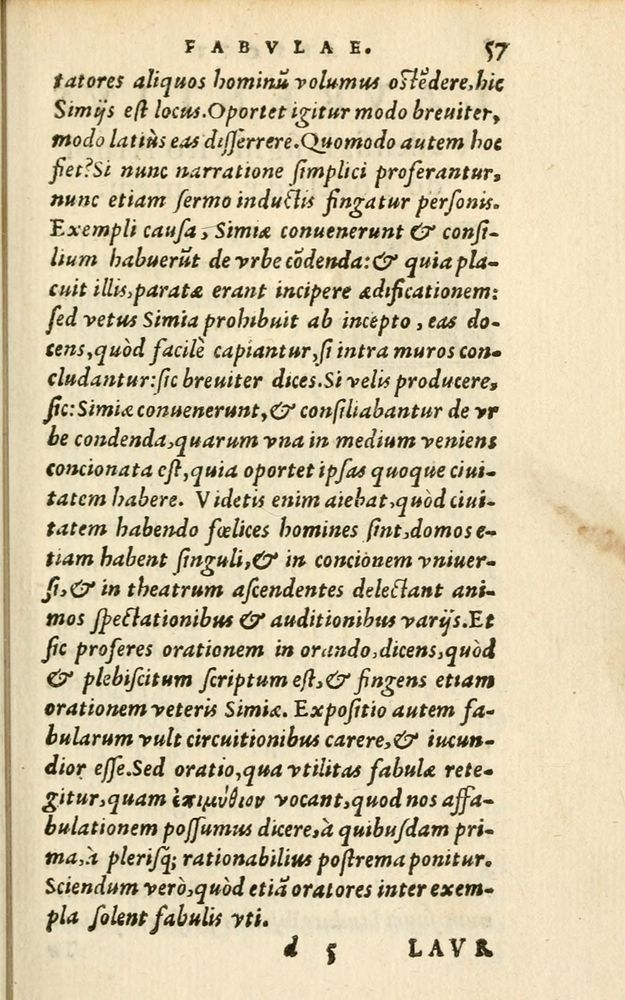 FABVLAE. 57
tatores aliquos hominũ volumus ostẽdere, hic
Simijs est locus. Oportet igitur modo breuiter,
modo latiùs eas disserrere. Quomodo autem hoc
fiet? Si nunc narratione simplici proferantur,
nunc etiam sermo inductis fingatur personis.
Exempli causa, Simiæ conuenerunt & consi-
lium habuerũt de vrbe cõdenda: & quia pla-
cuit illis, paratæ erant incipere ædificationem:
sed vetus Simia prohibuit ab incepto, eas do-
cens, quòd facilè capiantur, si intra muros con-
cludantur: sic breuiter dices. Si velis producere,
sic: Simiæ conuenerunt, & consiliabantur de vr
be condenda, quarum vna in medium veniens
concionata est, quia oportet ipsas quoque ciui-
tatem habere. Videtis enim aiebat, quòd ciui-
tatem habendo fœlices homines sint, domos e-
tiam habent singuli, & in concionem vniuer-
si, & in theatrum ascendentes delectant ani-
mos spectationibus & auditionibus varijs. Et
sic proferes orationem in orando, dicens, quòd
& plebiscitum scriptum est, & fingens etiam
orationem veteris Simiæ. Expositio autem fa-
bularum vult circuitionibus carere, & iucun-
dior esse. Sed oratio, qua vtilitas fabulæ rete-
gitur, quam ἐπιμύθιον vocant, quod nos affa-
bulationem possumus dicere, à quibusdam pri-
ma, à plerisq; rationabilius postrema ponitur.
Sciendum verò, quòd etiã oratores inter exem-
pla solent fabulis vti.
d 5 LAVR